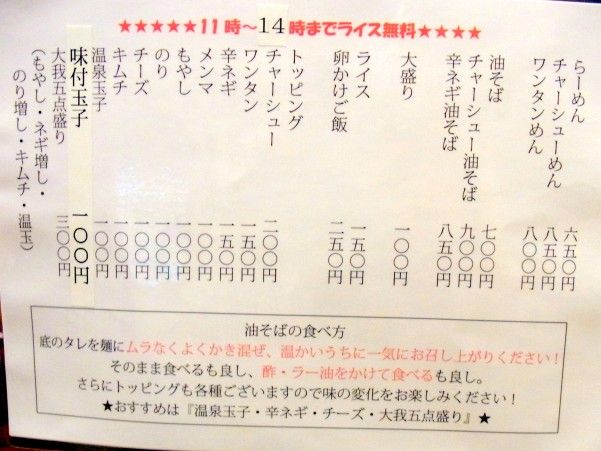 ★★★★★11時～14時までライス無料★★★★
らーめん 六五〇円
チャーシューめん 八五〇円
ワンタンめん 八〇〇円
油そば 七〇〇円
チャーシュー油そば 九〇〇円
辛ネギ油そば 八五〇円
大盛り 一〇〇円
ライス 一五〇円
卵かけご飯 二五〇円
トッピング
チャーシュー 二〇〇円
ワンタン 一五〇円
辛ネギ 一五〇円
メンマ 一〇〇円
もやし 一〇〇円
のり 一〇〇円
チーズ 一〇〇円
キムチ 一〇〇円
温泉玉子 一〇〇円
味付玉子 一〇〇円
大我五点盛り 三〇〇円
（もやし・ネギ増し・
のり増し・キムチ・温玉）
油そばの食べ方
底のタレを麺にムラなくよくかき混ぜ、温かいうちに一気にお召し上がりください！
そのまま食べるも良し、酢・ラー油をかけて食べるも良し。
さらにトッピングも各種ございますので味の変化をお楽しみください！
★おすすめは『温泉玉子・辛ネギ・チーズ・大我五点盛り』★